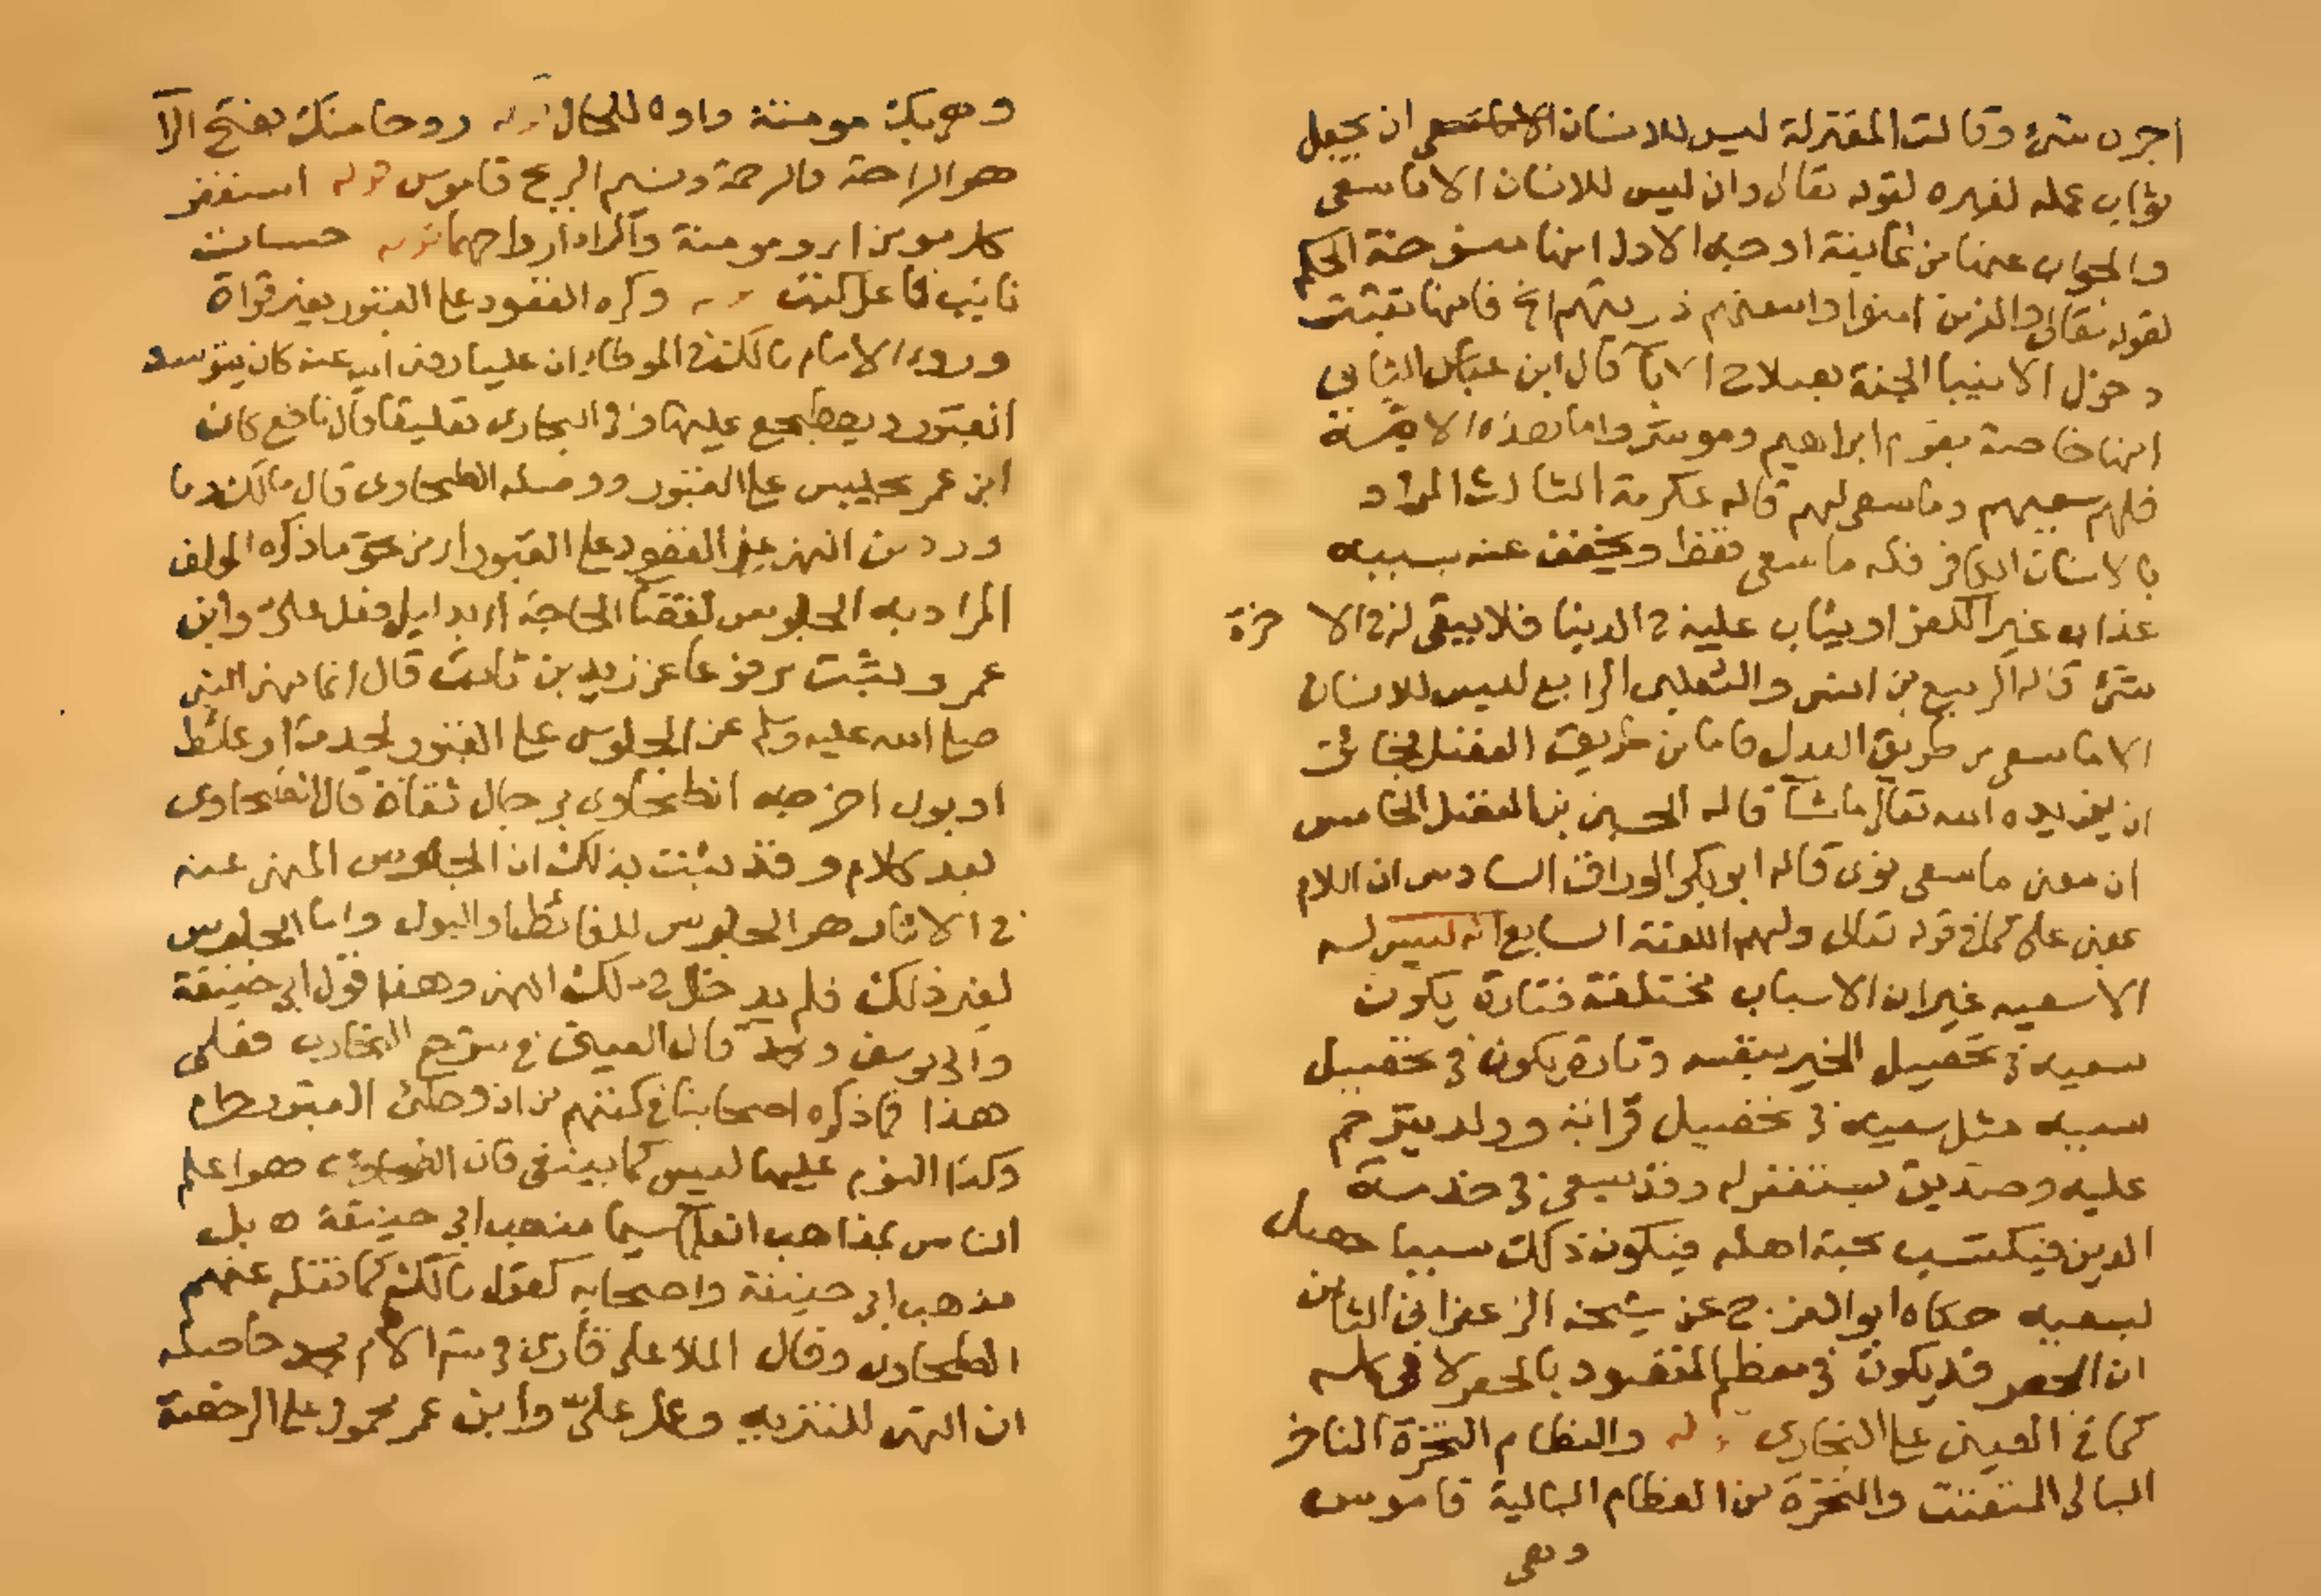 اجره شئ وقالت المعتزلة ليس للانسان ان يجعل
ثواب عمله لغيره لقوله تعالى وان ليس للانسان الا ما سعى
والجواب عنها من ثمانية اوجه الاول انها منسوخة الحكم
لقوله تعالى والذين امنوا واتبعتهم ذريتهم الخ فانها تقتضى
دخول الابنا الجنة بصلاح الابآ قال ابن عباس الثانى
انها خاصة بقوم ابراهيم وموسى واما هذه الامة
فلهم سعيهم وما سعى لهم قاله عكرمة الثالث المراد
بالانسان الكافر فله ما سعى فقط ويخفف عنه بسببه
عذاب غير الكفر او يثاب عليه فى الدنيا فلا يبقى له فى الاخرة
شئ قاله الربيع بن انس والثعلبى الرابع ليس للانسان
الا ما سعى من طريق العدل فاما من طريق الفضل فجائز
ان يزيده الله تعالى ما شآ قاله الحسين بن الفضل الخامس
ان معنى ما سعى نوى قاله ابو بكر الوراق السادس ان اللام
بمعنى على كما فى قوله تعالى ولهم اللعنة السابع انه ليس له
الا سعيه غير ان الاسباب مختلفة فتارة يكون
سعيه فى تحصيل الخير بنفسه وتارة يكون فى تحصيل
سببه مثل سعيه فى تحصيل قرابة وولد يترحم
عليه وصديق يستغفر له وقد يسعى فى خدمة
الدين فيكتسب محبة اهله فيكون ذلك سببا حصل
بسعيه حكاه ابو الفرج عن شيخه الزعفرانى الثامن
ان الحصر قد يكون فى معظم المقصود بالحصر لا فى كله
كما فى العينى على البخارى قوله والعظام النخرة الناخر
البالى المتفتت والنخرة من العظام البالية قاموس
وهى
وهى بك مومنة واوه للحال قوله روحا منك بفتح الرآ
هو الراحة والرحمة ونسيم الريح قاموس قوله استغفر
كل مومن اى ومومنة والمراد ارواحهما قوله حسنات
نائب فاعل كتب قوله وكره القعود على القبور بغير قراة
وروى الامام مالك فى الموطا ان عليا رضى الله عنه كان يتوسد
القبور ويضطجع عليها وفى البخارى تعليقا قال نافع كان
ابن عمر يجلس على القبور ووصله الطحاوى قال مالك وما
ورد من النهى عن القعود على القبور اى من نحو ما ذكره المولف
المراد به الجلوس لقضآ الحاجة اى بدليل فعل على وابن
عمر وثبت مرفوعا عن زيد بن ثابت قال انما نهى النبى
صلى الله عليه وسلم عن الجلوس على القبور لحدث او غائط
او بول اخرجه الطحاوى برجال ثقاة قال الطحاوى
بعد كلام وقد ثبت بذلك ان الجلوس المنهى عنه
فى الاثار هو الجلوس للغائط او البول واما الجلوس
لغير ذلك فلم يدخل فى ذلك النهى وهذا قول ابى حنيفة
وابى يوسف ومحمد قال العينى فى شرح البخارى فعلى
هذا فما ذكره اصحابنا فى كتبهم من ان وطئ القبور حرام
وكذا النوم عليها ليس كما ينبغى فان الطحاوى هو اعلم
الناس بمذاهب العلمآ سيما مذهب ابى حنيفة ه بل
مذهب ابى حنيفة واصحابه كقول مالك كما نقله عنهم
الطحاوى وقال الملا على قارى فى حاصله
ان النهى للتنزيه وعمل على وابن عمر محمول على الرخصة